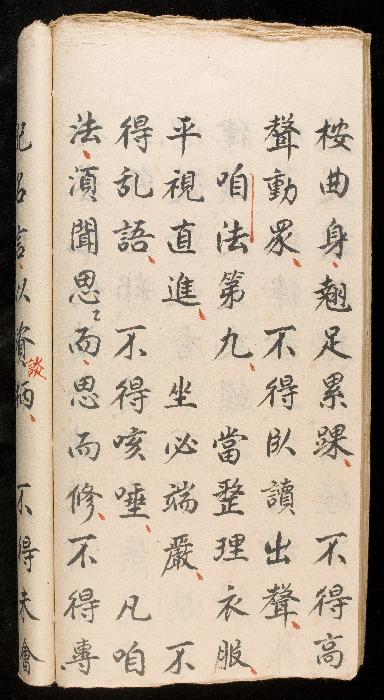 桉曲身、翹足累踝、不得高
聲動眾、不得臥讀出聲、
咱法第九、當整理衣服、
平視直進、坐必端嚴、不
得乱語、不得咳唾、凡咱
法、湏聞思〻而、思而修、不得專
記名言、以資談柄、不得未會